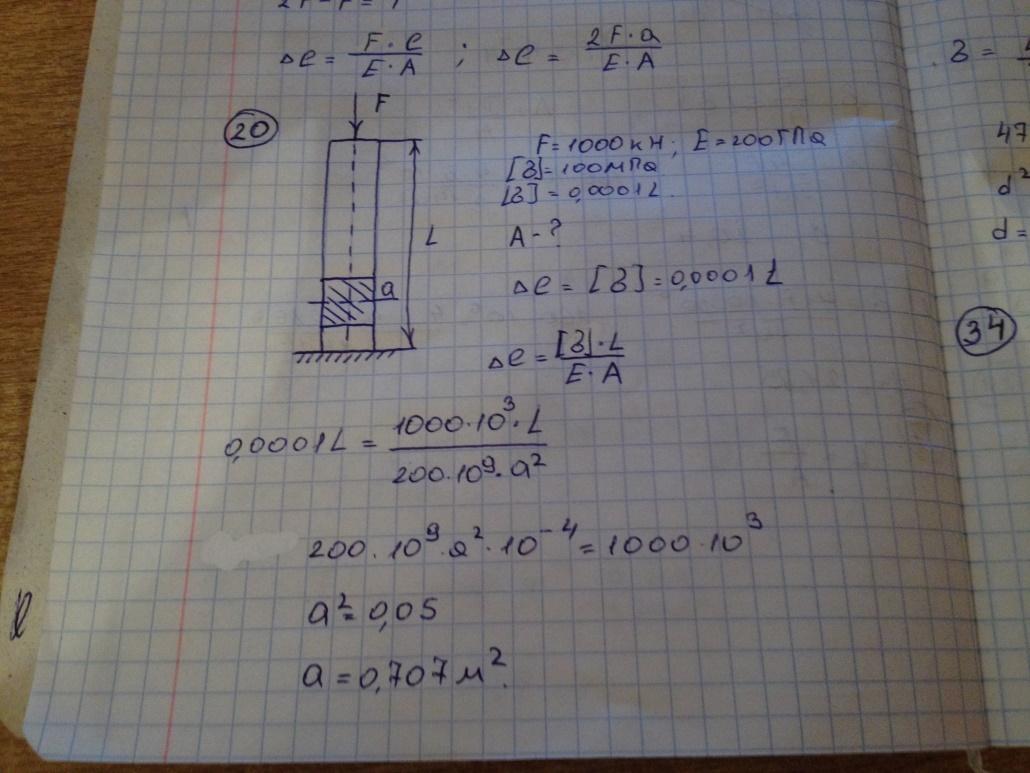 Δl = F·l / E·A ; Δl = 2F·a / E·A
20
F
F = 1000 кН; E = 200 ГПа
[З] = 100 МПа
[З] = 0,0001L.
A - ?
L
a
Δl = [З] = 0,0001L
Δl = [З]·L / E·A
0,0001L = 1000·10³·L / 200·10⁹·a²
200·10⁹·a²·10⁻⁴ = 1000·10³
a² = 0,05
a = 0,707 м².
З =
47
d²
d =
34